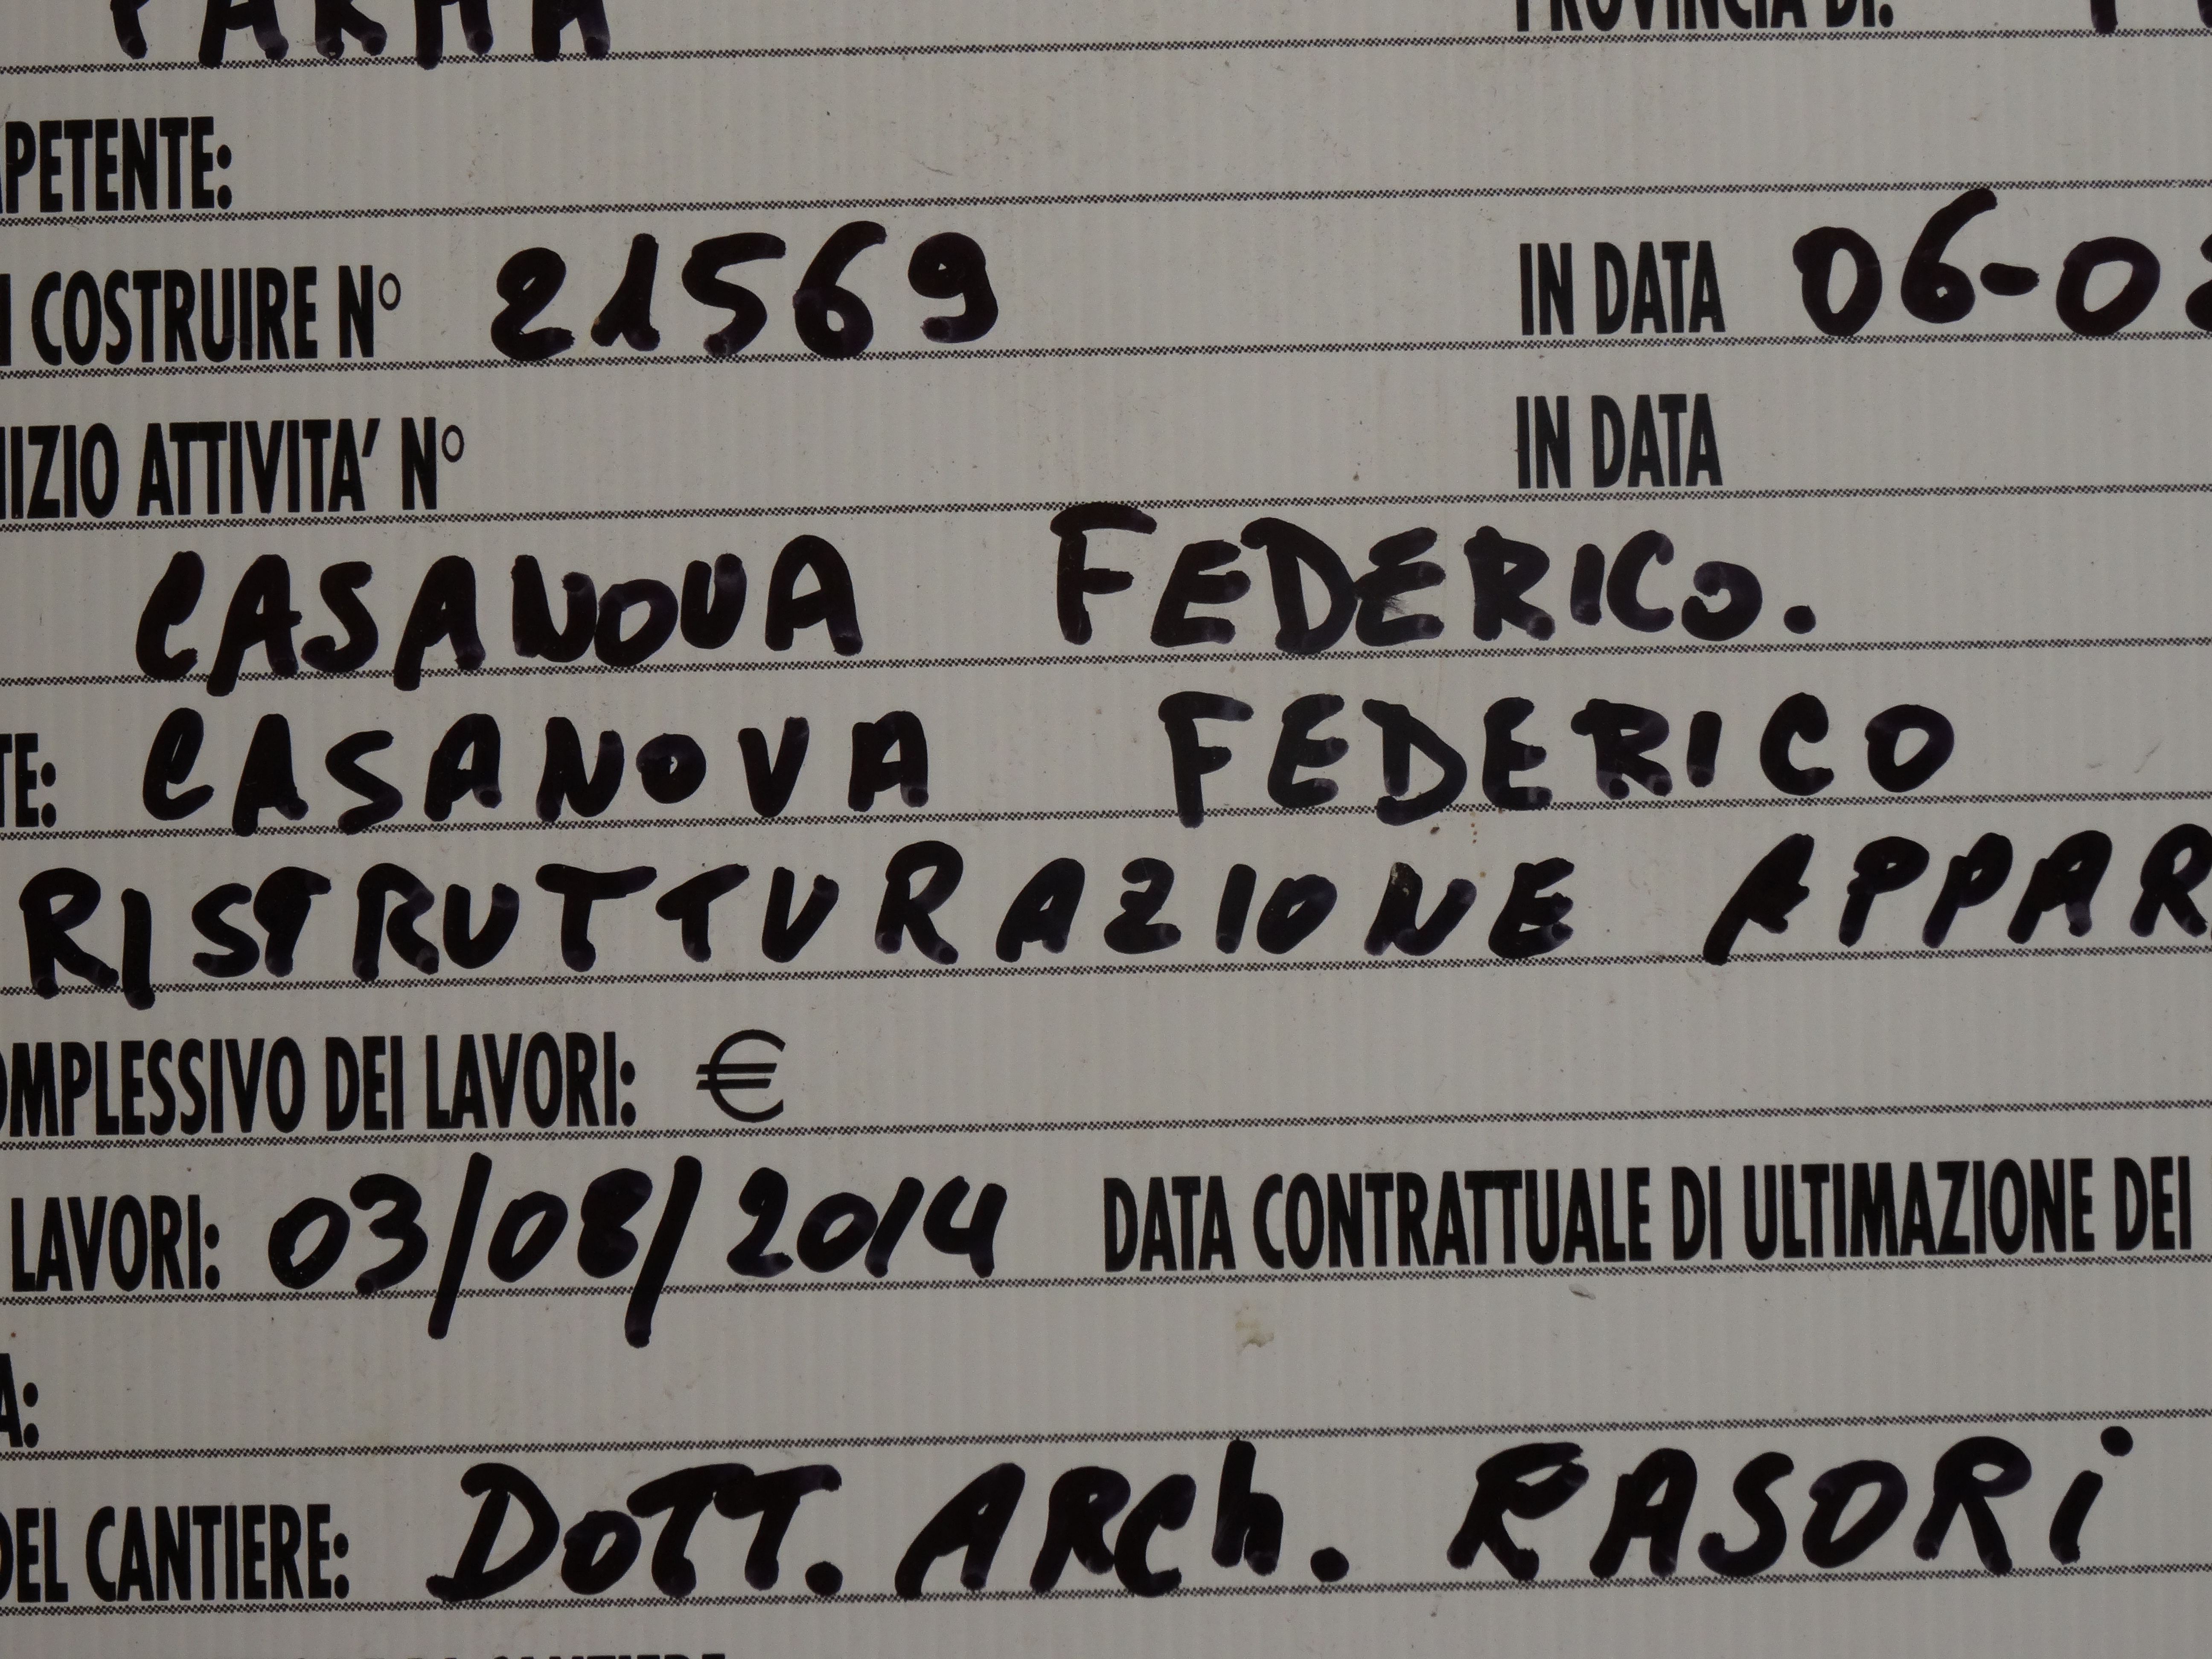 PARMA PROVINCIA DI:
PETENTE:
COSTRUIRE N° 21569 IN DATA 06-02
IZIO ATTIVITA' N° IN DATA
CASANOVA FEDERICO.
TE: CASANOVA FEDERICO
RISTRUTTURAZIONE APPAR
OMPLESSIVO DEI LAVORI: €
LAVORI: 03/08/2014 DATA CONTRATTUALE DI ULTIMAZIONE DEI
A:
DEL CANTIERE: DOTT. ARCh. RASORi